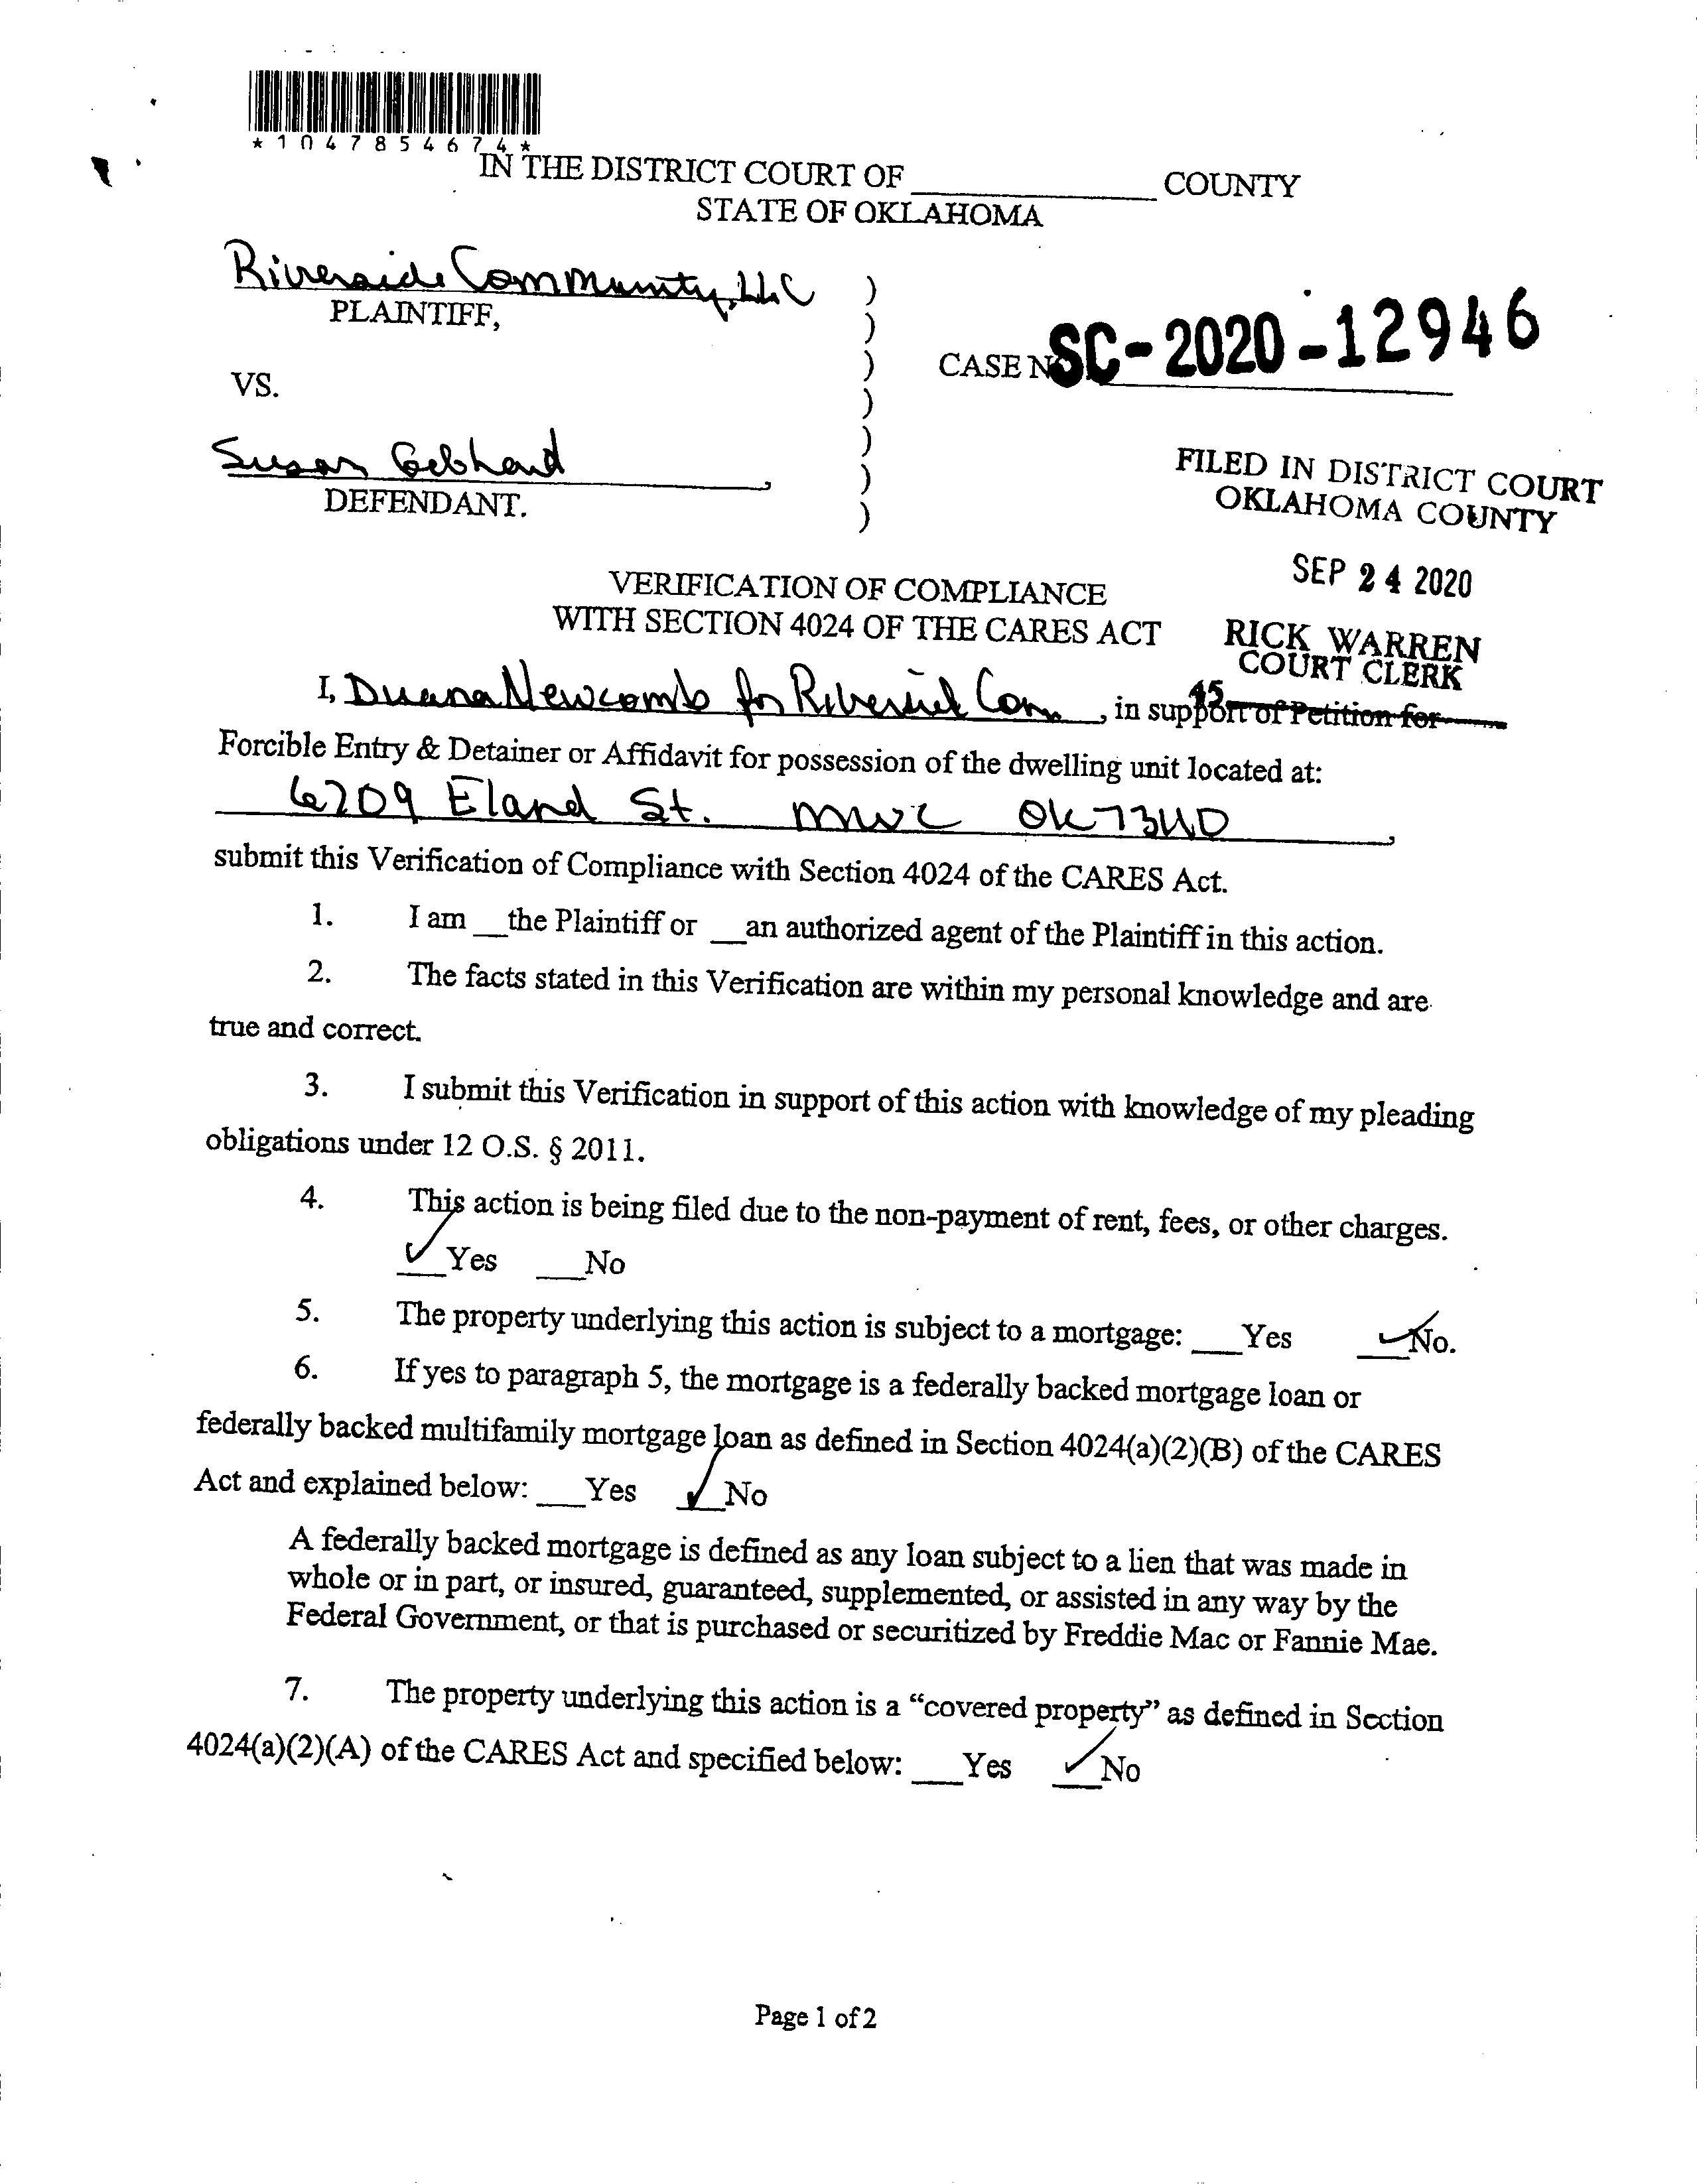 *1047854674*
IN THE DISTRICT COURT OF ____________ COUNTY
STATE OF OKLAHOMA
Riverside Community, LLC )
PLAINTIFF, )
CASE NO SC-2020-12946
VS. )
Susan Gebhard ,
DEFENDANT. )
FILED IN DISTRICT COURT
OKLAHOMA COUNTY
SEP 24 2020
RICK WARREN
COURT CLERK
45
VERIFICATION OF COMPLIANCE
WITH SECTION 4024 OF THE CARES ACT
I, Duana Newcomb for Riverside Com , in support of Petition for
Forcible Entry & Detainer or Affidavit for possession of the dwelling unit located at:
6209 Eland St. MWC OK 73110 ,
submit this Verification of Compliance with Section 4024 of the CARES Act.
1. I am __the Plaintiff or __an authorized agent of the Plaintiff in this action.
2. The facts stated in this Verification are within my personal knowledge and are
true and correct.
3. I submit this Verification in support of this action with knowledge of my pleading
obligations under 12 O.S. § 2011.
4. This action is being filed due to the non-payment of rent, fees, or other charges.
✓ Yes ___No
5. The property underlying this action is subject to a mortgage: ___Yes ✓ No.
6. If yes to paragraph 5, the mortgage is a federally backed mortgage loan or
federally backed multifamily mortgage loan as defined in Section 4024(a)(2)(B) of the CARES
Act and explained below: ___Yes ✓ No
A federally backed mortgage is defined as any loan subject to a lien that was made in
whole or in part, or insured, guaranteed, supplemented, or assisted in any way by the
Federal Government, or that is purchased or securitized by Freddie Mac or Fannie Mae.
7. The property underlying this action is a “covered property” as defined in Section
4024(a)(2)(A) of the CARES Act and specified below: ___Yes ✓ No
Page 1 of 2